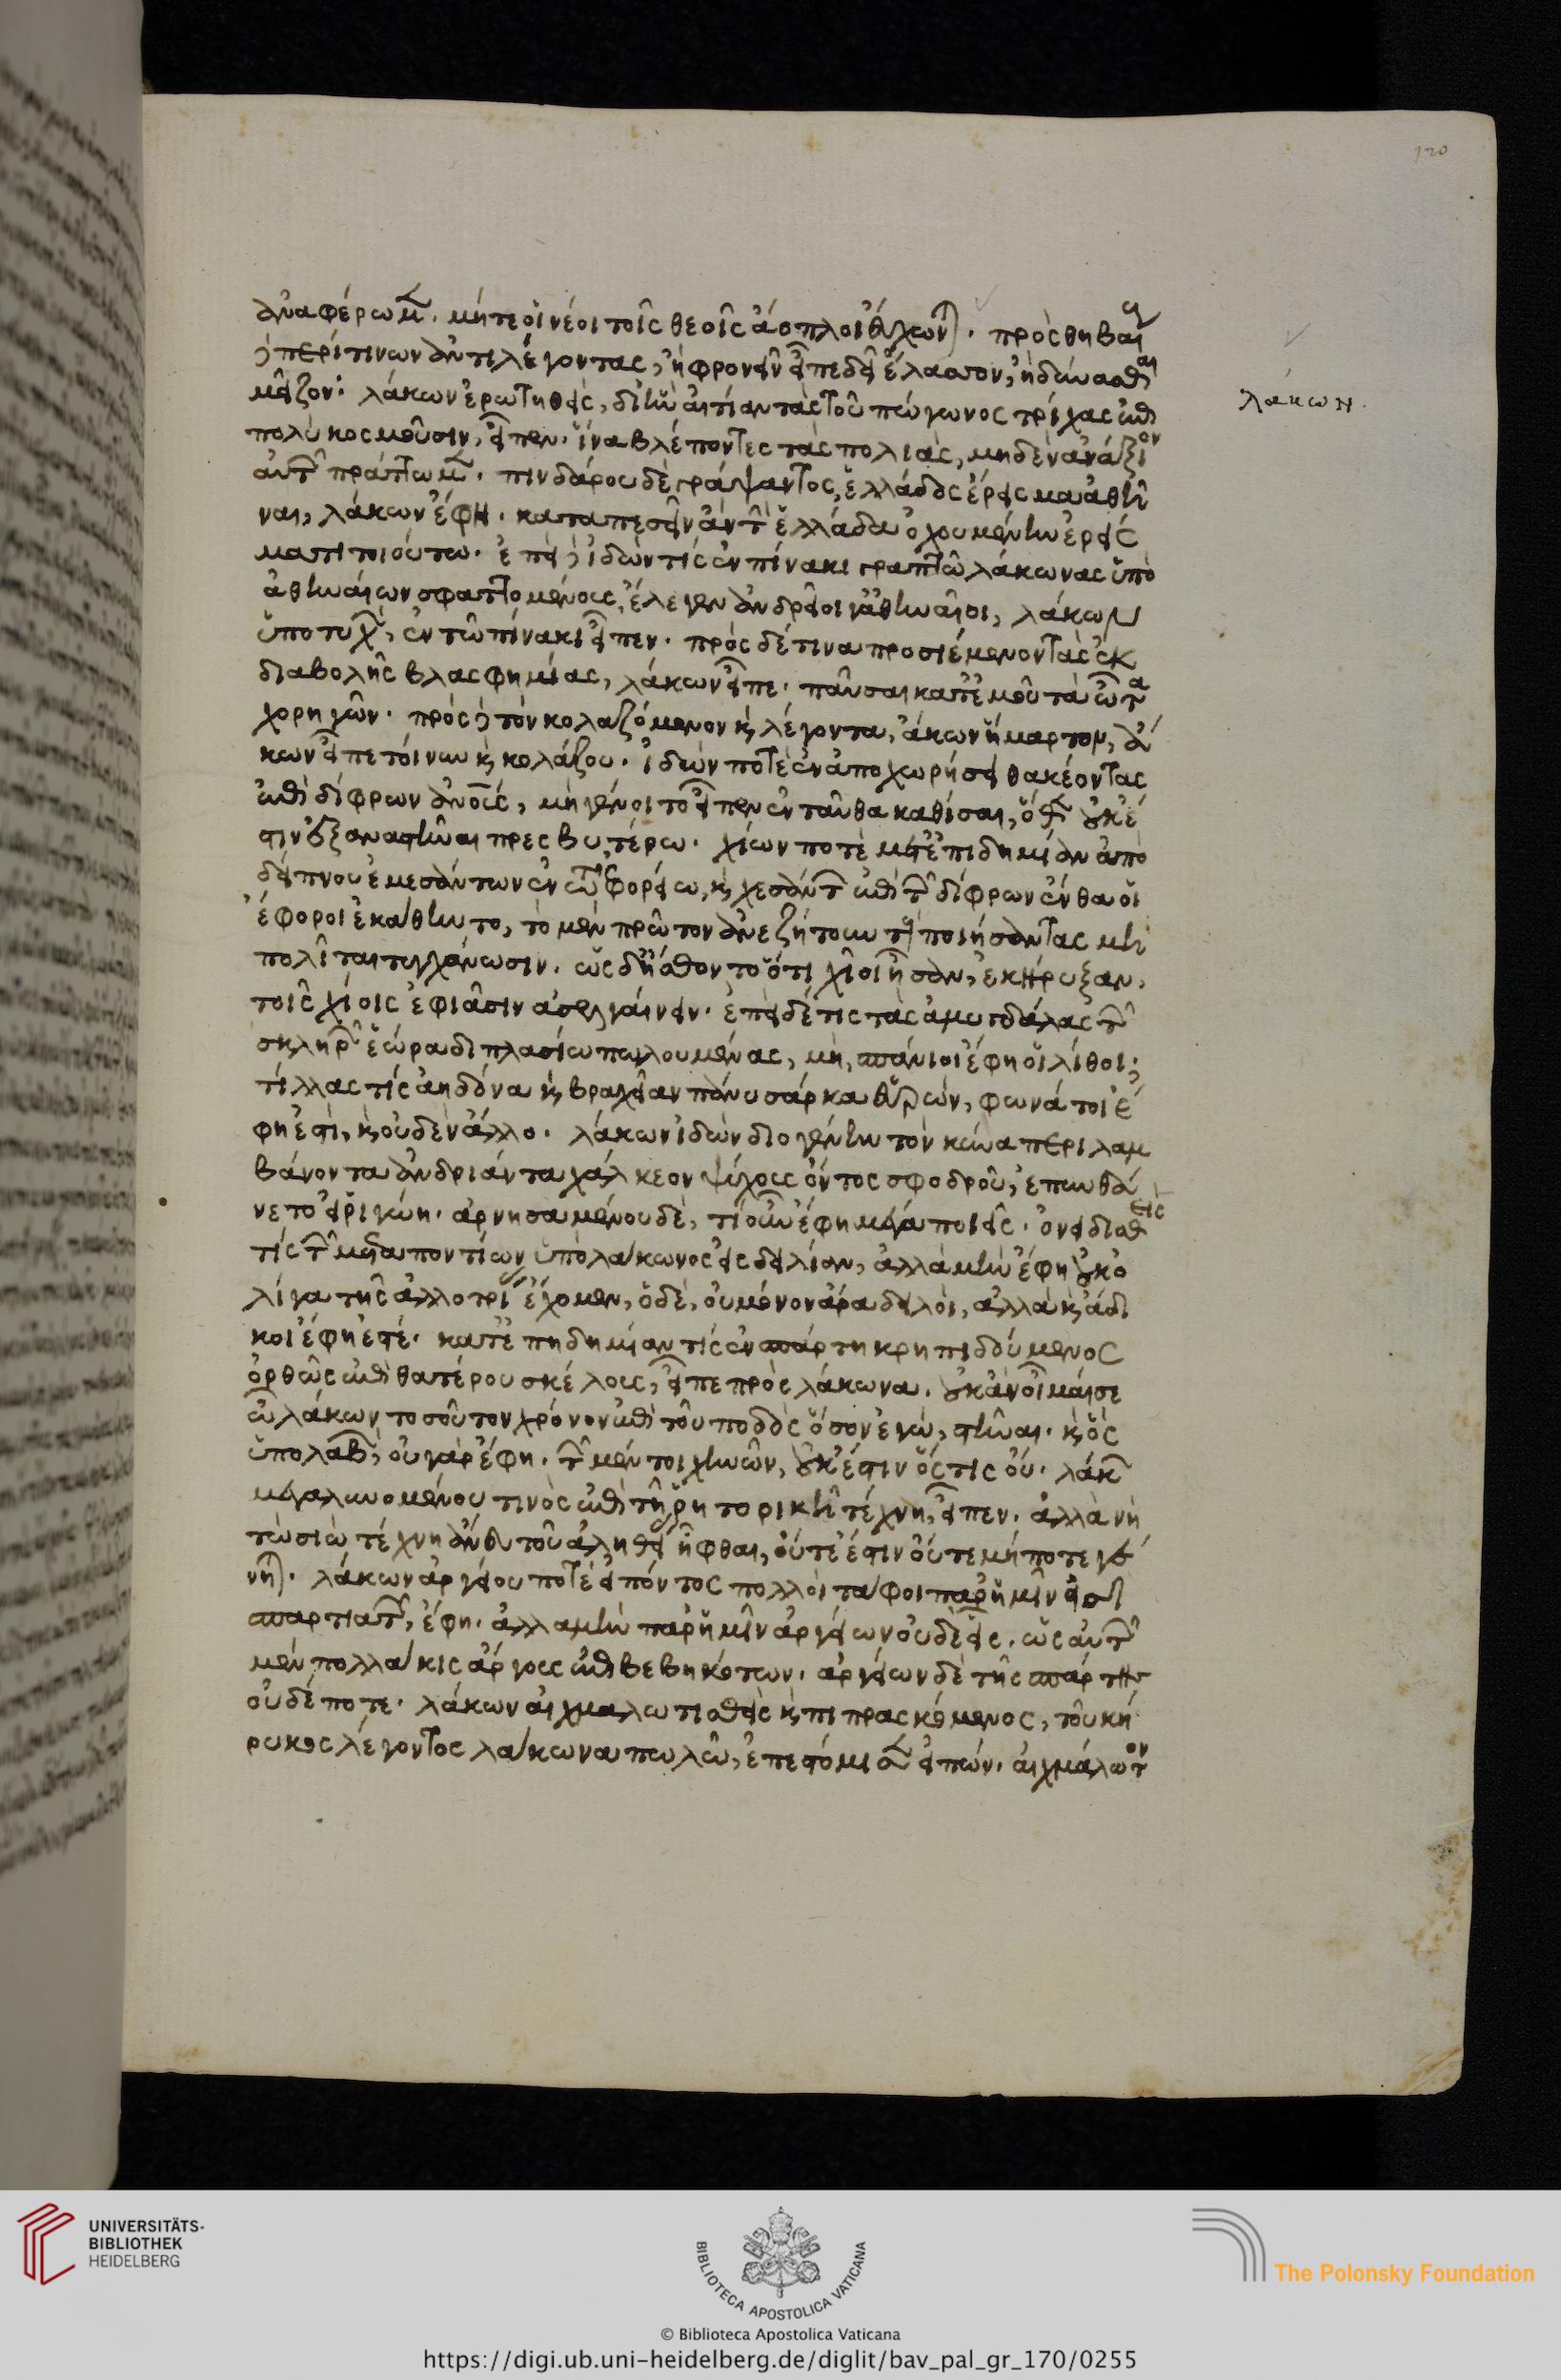 120
ἀναφέρωμεν. μήτε οἱ νέοι τοῖς θεοῖς ἄοπλοι εὔχωνται. πρὸς θηβαί
ους περί τινων ἀντιλέγοντας, ἢ φρονεῖν εἶπε δεῖ ἔλασσον, ἢ δύνασθαι
μεῖζον. λάκων ἐρωτηθεὶς, διὰ τί τὰς τοῦ πώγωνος τρίχας ἐπὶ
πολὺ κοσμοῦσιν, εἶπεν. ἵνα βλέποντες τὰς πολιὰς, μηδὲν ἀνάξιον
αὐτῶν πράττωμεν. πινδάρου δὲ γράψαντος, ἑλλάδος ἔρεισμα ἀθῆ
ναι, λάκων ἔφη. καταπεσεῖν ἂν τὴν ἑλλάδα ὀχουμένην ἐρείσ
ματι τοιούτω. ἐπεὶ δὲ ἰδών τις ἐν πίνακι γραπτῶ λάκωνας ὑπὸ
ἀθηναίων σφαττομένους, ἔλεγεν ἀνδρεῖοι γ' ἀθηναῖοι, λάκων
ὑποτυχὼν, ἐν τῶ πίνακι εἶπεν. πρὸς δέ τινα προσιέμενον τὰς ἐκ
διαβολῆς βλασφημίας, λάκων εἶπε. παῦσαι κατ' ἐμοῦ τὰ ὦτα
χορηγῶν. πρὸς δὲ τὸν κολαζόμενον καὶ λέγοντα, ἄκων ἥμαρτον, ἄ
κων εἶπε τοίνυν καὶ κολάζου. ἰδών ποτε ἐν ἀποχωρήσει θακέοντας
ἐπὶ δίφρων ἀνθρώπους, μὴ γένοιτο εἶπεν ἐνταῦθα καθίσαι, ὅθεν οὐκ ἔ
στιν ὑπεξαναστῆναι πρεσβυτέρω. χίων ποτὲ κατ' ἐπιδημίαν ἀπὸ
δείπνου ἐμεσάντων ἐν τῶ ἐφορείω, καὶ χεσάντων ἐπὶ τῶν δίφρων ἔνθα οἱ
ἔφοροι ἐκάθηντο, τὸ μὲν πρῶτον ἀνεζήτουν τοὺς ποιήσαντας μὴ
πολῖται τυγχάνωσιν. ὡς δ' ἤσθοντο ὅτι χῖοι ἦσαν, ἐκήρυξαν,
τοῖς χίοις ἐφιᾶσιν ἀσελγαίνειν. ἐπεὶ δέ τις τὰς ἀμυγδάλας τῶν
σκληρῶν ἑώρα διπλασίω πωλουμένας, μὴ, σπάνιοι ἔφη οἱ λίθοι;
τίλλας τις ἀηδόνα καὶ βραχεῖαν πάνυ σάρκα εὑρὼν, φωνά τοι ἔ
φη ἐστὶ, καὶ οὐδὲν ἄλλο. λάκων ἰδὼν διογένην τὸν κύνα περιλαμ
βάνοντα ἀνδριάντα χάλκεον ψύχους ὄντος σφοδροῦ, ἐπυνθά
νετο εἰ ῥιγώη. ἀρνησαμένου δὲ, τί οὖν ἔφη μέγα ποιεῖς. ὀνειδισθείς
τις τῶν μεταποντίων ὑπὸ λάκωνος εἰς δειλίαν, ἀλλὰ μὴν ἔφη οὐκ ὀ
λίγα τῆς ἀλλοτρίας ἔχομεν, ὁ δὲ, οὐ μόνον ἄρα δειλοὶ, ἀλλὰ καὶ ἄδι
κοι ἔφη ἐστέ. κατ' ἐπηδημίαν τις ἐν σπάρτη κρηπιδδύμενος
ὀρθῶς ἐπὶ θατέρου σκέλους, εἶπε πρὸς λάκωνα. οὐκ ἂν οἶμαί σε
ὦ λάκων τοσοῦτον χρόνον ἐπὶ τοῦ ποδὸς ὅσον ἐγὼ, στῆναι. καὶ ὃς
ὑπολαβὼν, οὐ γὰρ ἔφη. τῶν μέντοι χηνῶν, οὐκ ἔστιν ὅστις οὐ. λάκων
μεγαλυνομένου τινὸς ἐπὶ τῆ ῥητορικῆ τέχνη, εἶπεν. ἀλλὰ νὴ
τὼ σιὼ τέχνη ἄνευ τοῦ ἀληθείας ἧφθαι, οὔτε ἔστιν οὔτε μήποτε γέ
νηται. λάκων ἀργείου ποτὲ εἰπόντος πολλοὶ τάφοι παρ' ἡμῖν εἰσὶ
σπαρτιατῶν, ἔφη. ἀλλὰ μὴν παρ' ἡμῖν ἀργείων οὐδὲ εἷς. ὡς αὐτῶν
μὲν πολλάκις ἄργους ἐπιβεβηκότων. ἀργείων δὲ τῆς σπάρτης
οὐδέποτε. λάκων αἰχμαλωτισθεὶς καὶ πιπρασκόμενος, τοῦ κή
ρυκος λέγοντος λάκωνα πωλῶ, ἐπεστόμισεν εἰπών. αἰχμάλωτον
λάκων.
UNIVERSITÄTS-
BIBLIOTHEK
HEIDELBERG
BIBLIOTECA APOSTOLICA VATICANA
The Polonsky Foundation
© Biblioteca Apostolica Vaticana
https://digi.ub.uni-heidelberg.de/diglit/bav_pal_gr_170/0255